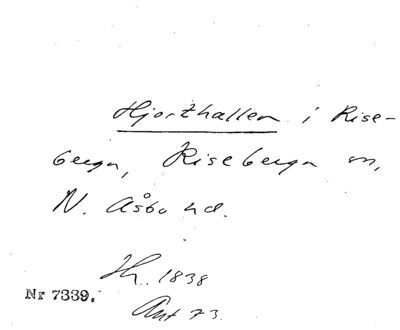 Hjorthallen i Rise-
berga, Riseberga sn,
N. Åsbo hd.
Hm. 1838
Nr 7339.
Ant 73.